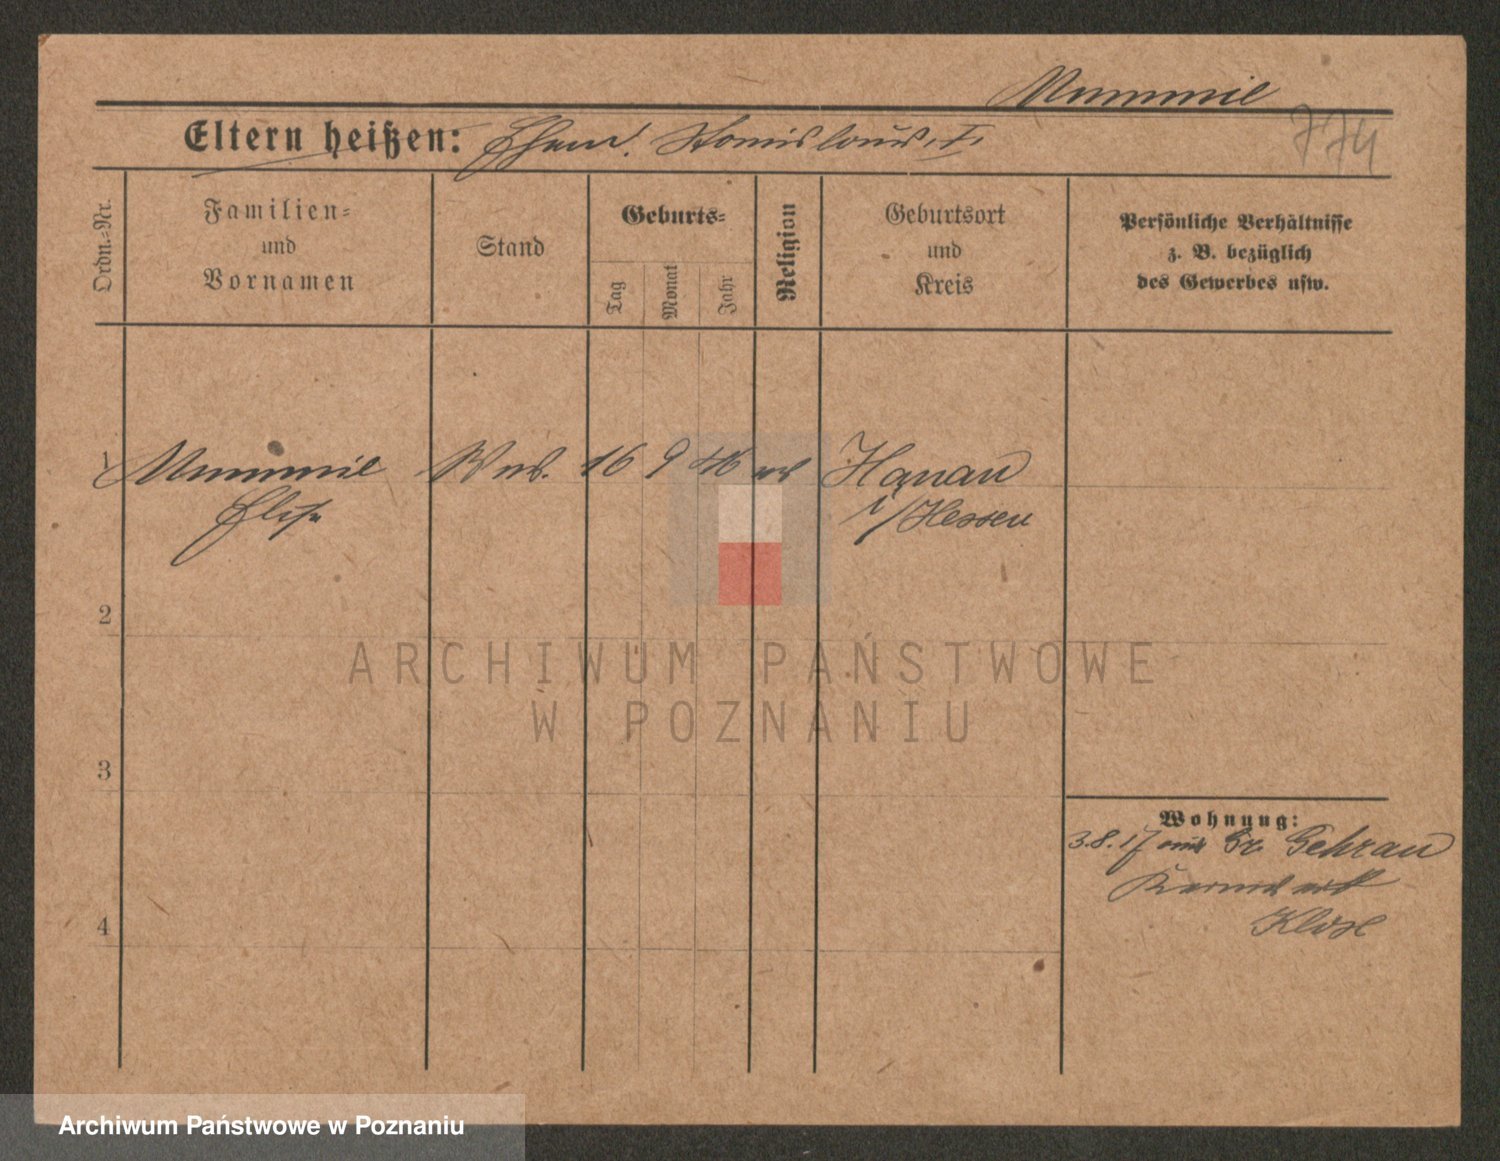 Mummie
774
Eltern heißen: Ehem. Stanislaus †.
Ordn.-Nr.
Familien-
und
Vornamen
Stand
Geburts-
Tag
Monat
Jahr
Religion
Geburtsort
und
Kreis
Persönliche Verhältnisse
z. B. bezüglich
des Gewerbes usw.
1 Mummie Ww. 16 9 46 Hanau
Elise i/Hessen
2
3
4
ARCHIWUM PAŃSTWOWE
W POZNANIU
Wohnung:
3.8.17 aus Gr. Gehrau
Archiwum Państwowe w Poznaniu